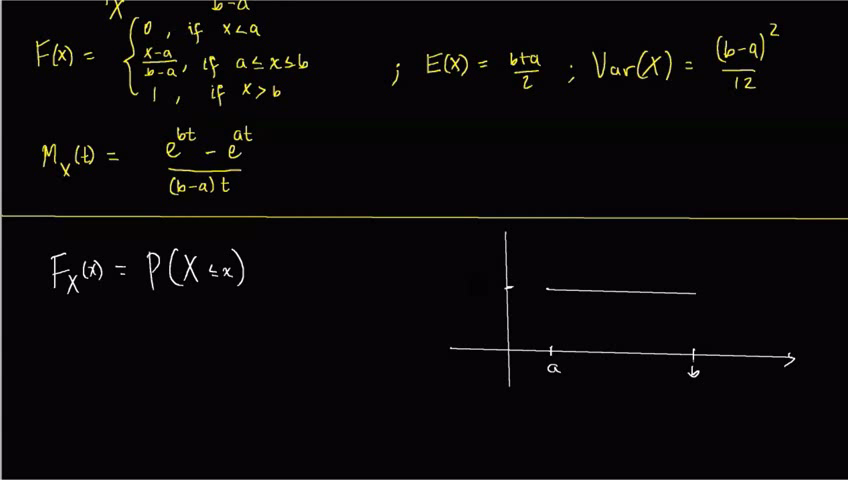 X b-a
F(x) = { 0 , if x<a
x-a/b-a , if a≤x≤b
1 , if x>b
; E(x) = b+a/2 ; Var(X) = (b-a)²/12
M_X(t) = e^bt - e^at/(b-a)t
F_X(x) = P(X ≤ x)
a b